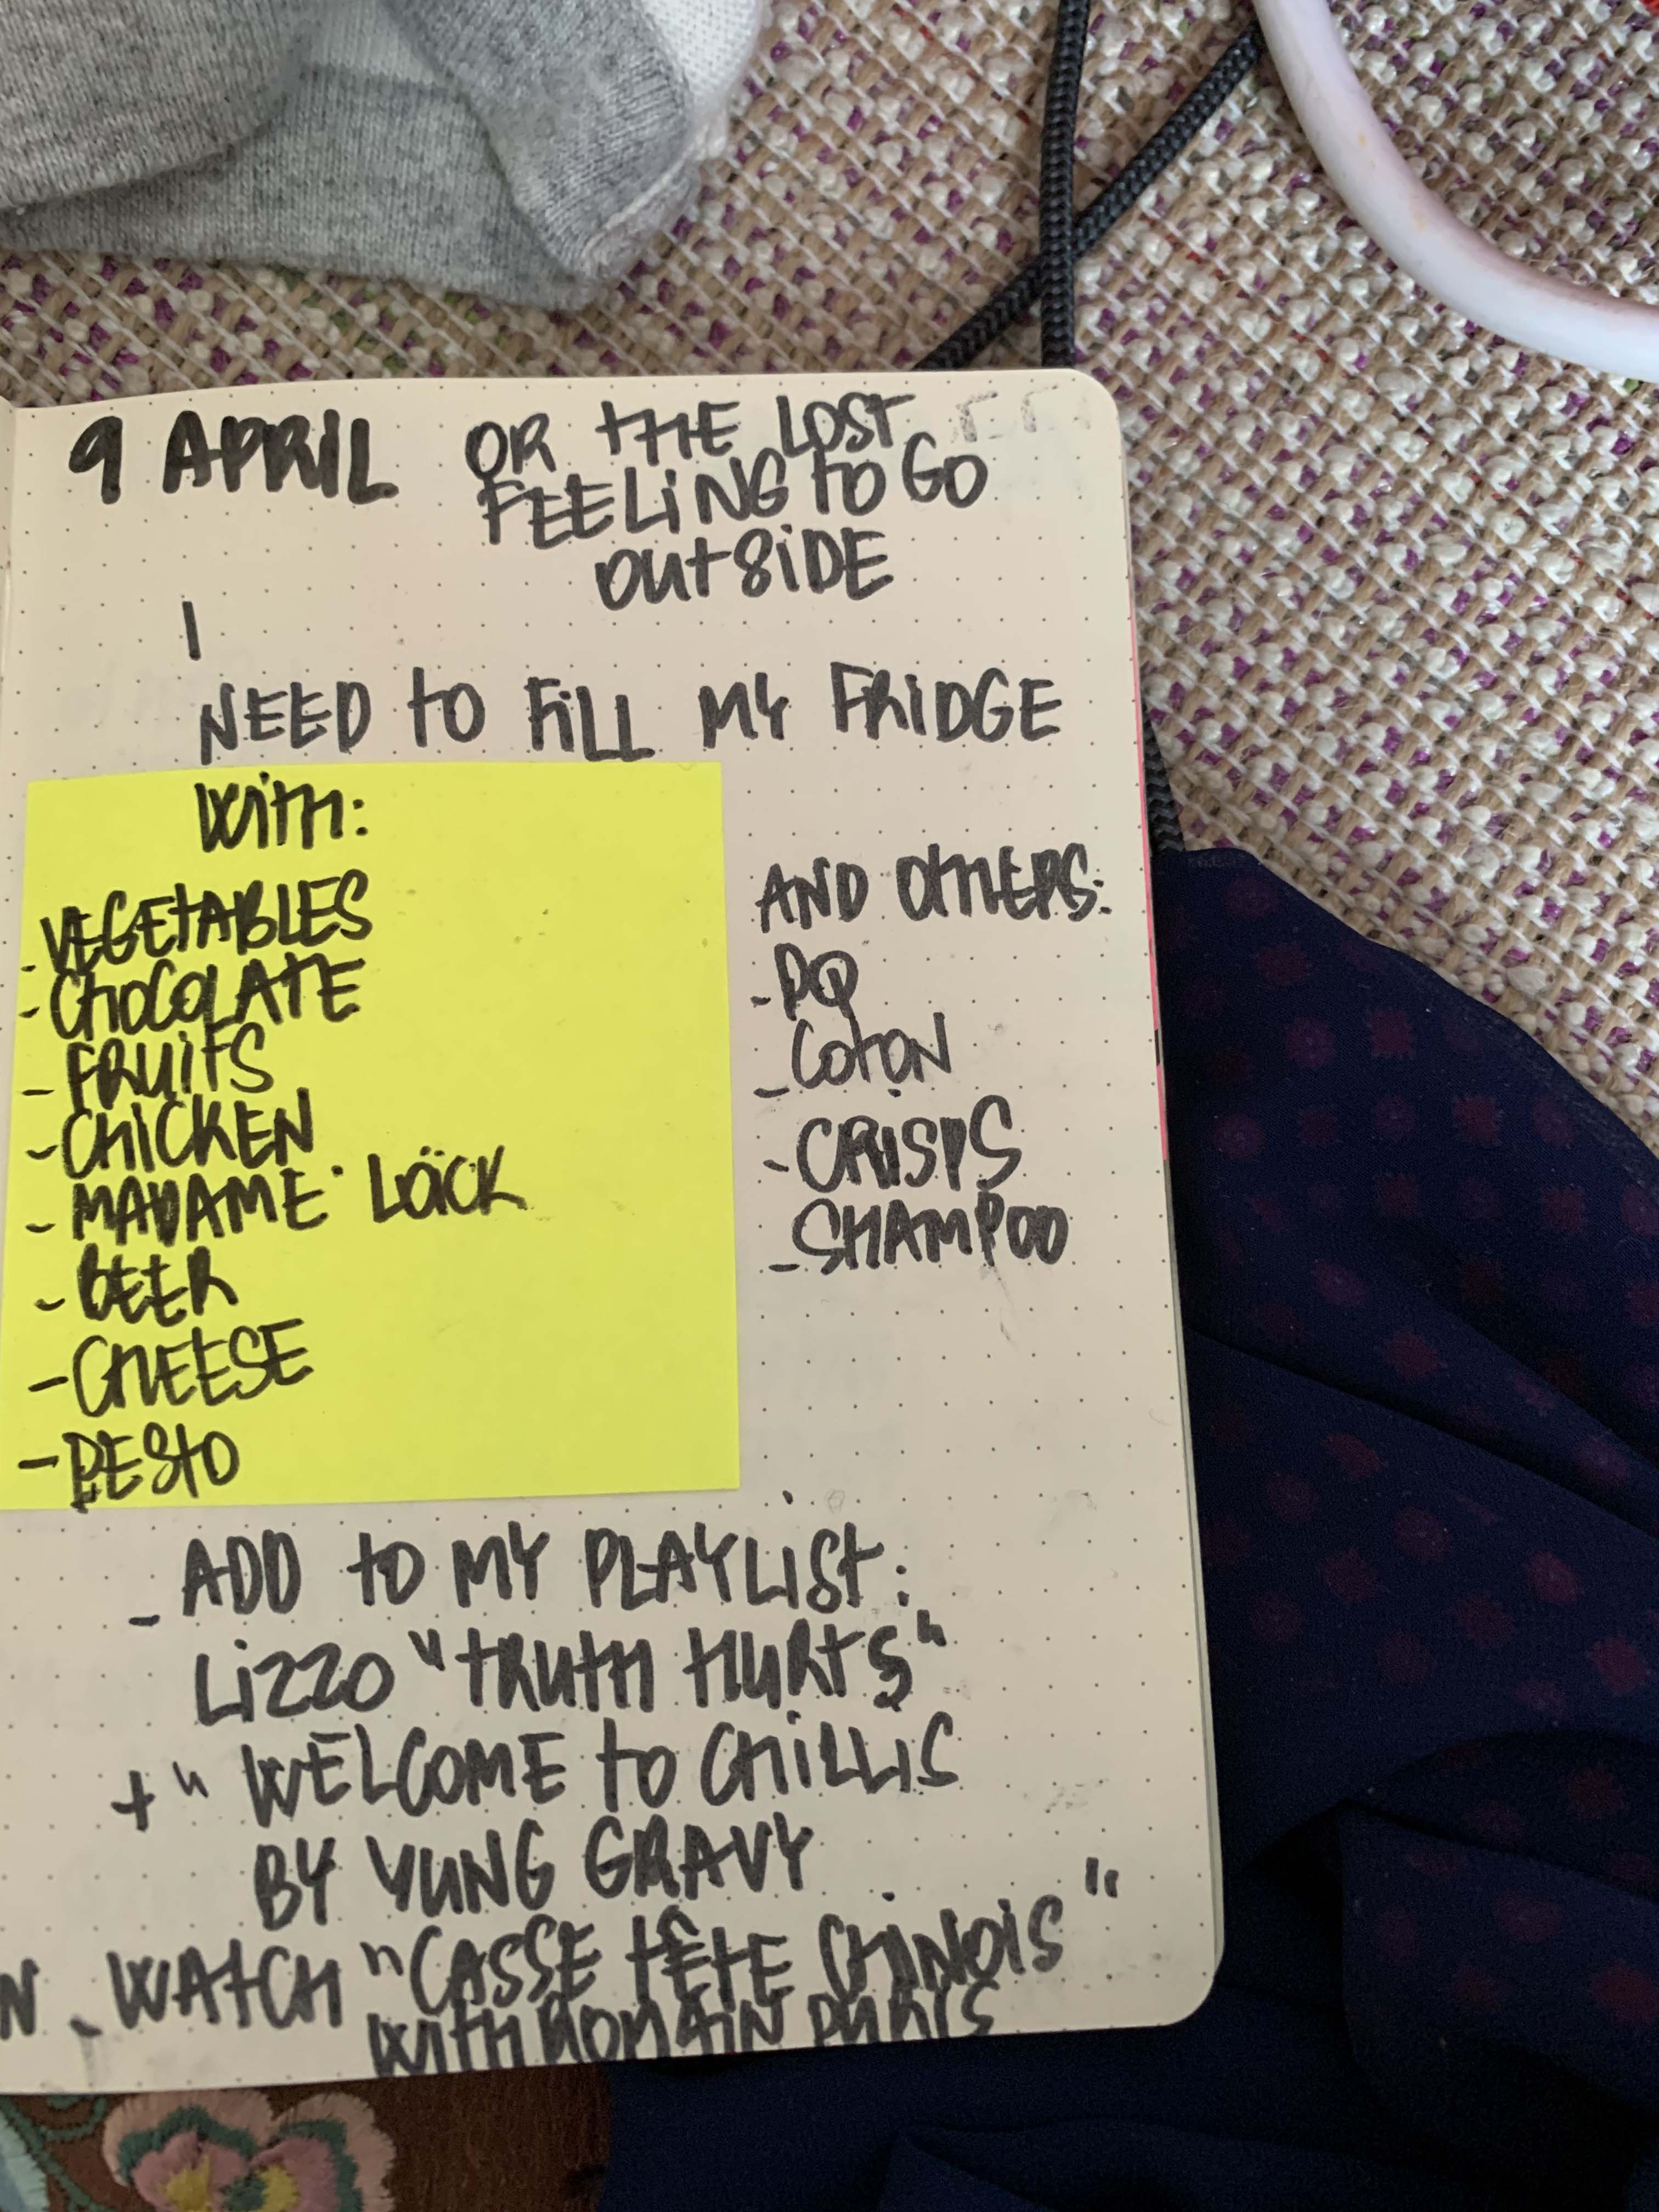 9 APRIL OR THE LOST
FEELING TO GO
OUTSIDE
I
NEED TO FILL MY FRIDGE
WITH:
- VEGETABLES
- CHOCOLATE
- FRUITS
- CHICKEN
- MADAME LÖICK
- BEER
- CHEESE
- PESTO
AND OTHERS:
- PQ
- COTON
- CRISPS
- SHAMPOO
- ADD TO MY PLAYLIST:
LIZZO "TRUTH HURTS"
+ " WELCOME TO CHILLIS
BY YUNG GRAVY
N - WATCH "CASSE TÊTE CHINOIS"
WITH ROMAIN DURIS